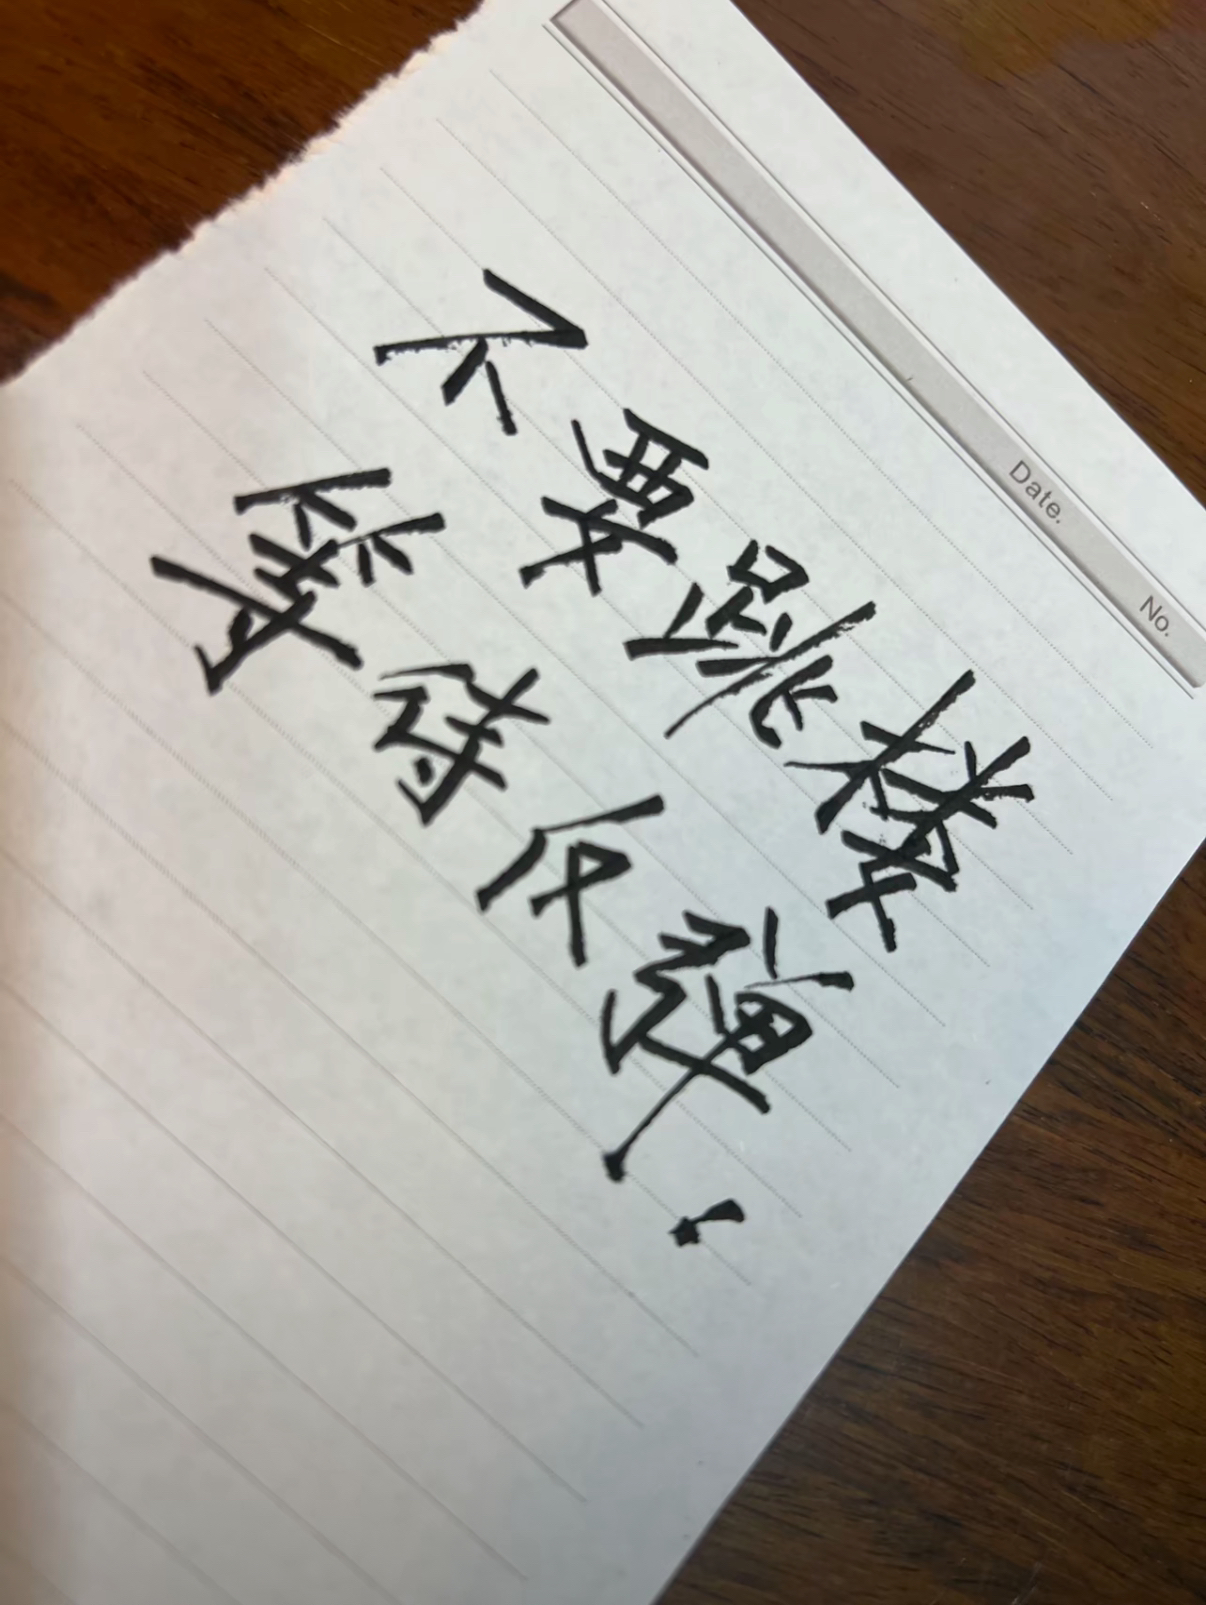 不要跳楼
等待反弹!
Date.
No.